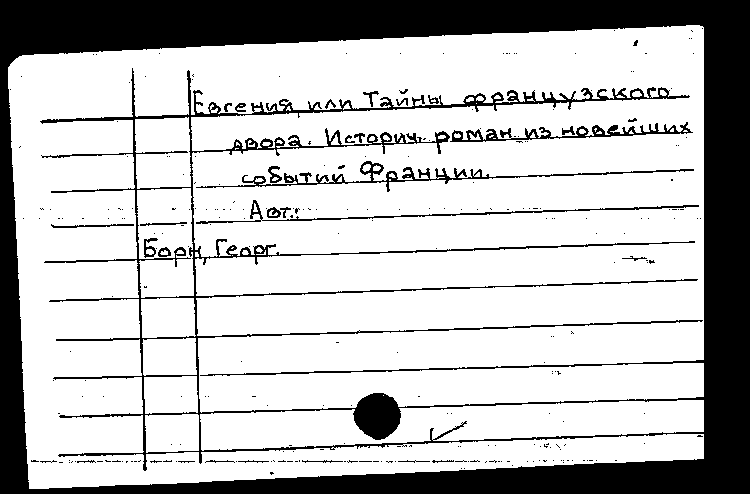 Евгения, или Тайны французского
двора. Историч. роман из новейших
событий Франции.
Авт.:
Борн, Георг.